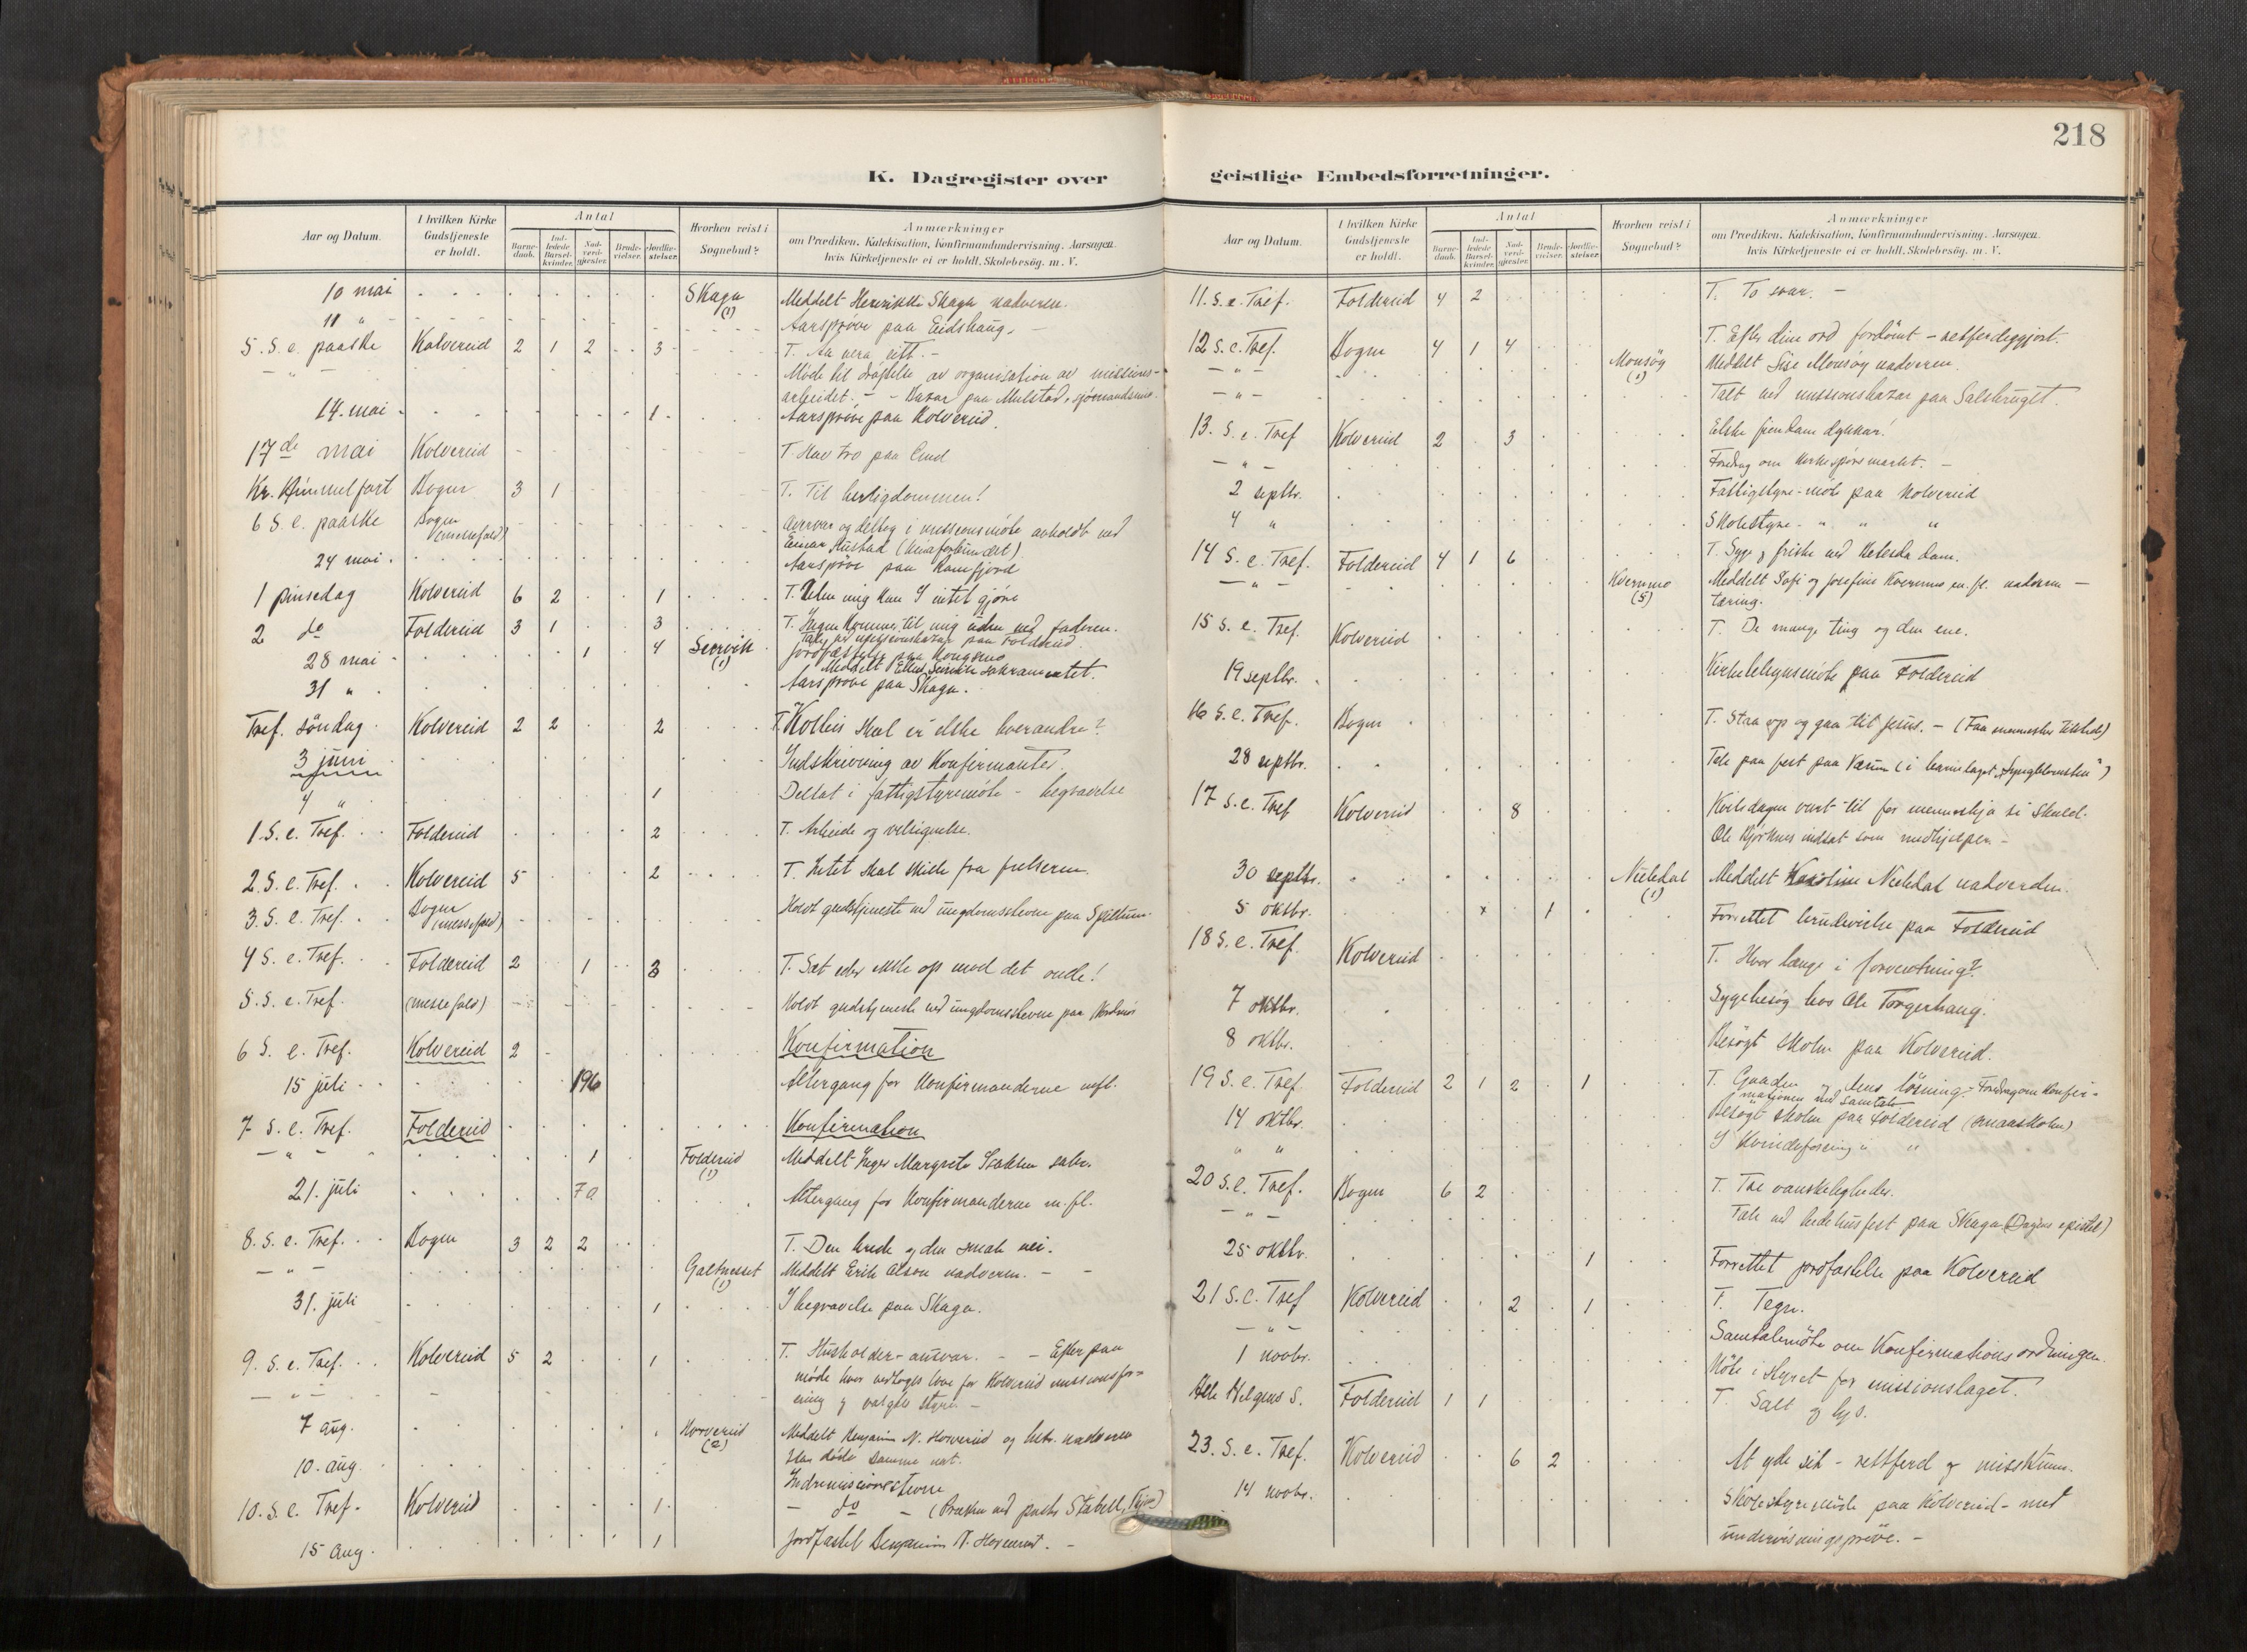 218
K. Dagregister over
Aar og Datum.
I hvilken Kirke Gudstjeneste er holdt.
Antal
Barne-daab.
Ind-ledede Barsel-kvinder.
Nad-verd-gjæster.
Brude-vielser.
Jordfæ-stelser.
Hvorhen reist i Sognebud?
Anmærkninger
om Prædiken, Katekisation, Konfirmandundervisning. Aarsagen.
hvis Kirketjeneste ei er holdt. Skolebesøg. m. V.
10 mai Skaga (1) Meddelt Henrikke Skaga nadveren.
11 " Aarsprøve paa Eidshaug. -
5. S. e. paaske Kolvereid 2 1 2 3 T. Aa vera eitt. -
- " - Møde til drøftelse av organisation av missions-
arbeidet. - - Bazar paa Mulstad, sjømandsmis.
14. mai 1 Aarsprøve paa Kolvereid.
17de mai Kolvereid T. Hav tro paa Gud
Kr. Himmelfart Bogen 3 1 T. Til herligdommen!
6 S. e. paaske Bogen (messefald) Overvar og deltog i missionsmøte avholdt ved
Einar Hustad (Kinaforbundet)
24 mai. Aarsprøve paa Ramfjord
1 pinsedag Kolvereid 6 2 1 T. Uten mig kan I intet gjøre
2 do Foldereid 3 1 3 T. Ingen kommer til mig uden ved faderen.
Tale ved missionsbazar paa Foldereid
28 mai 1 4 Seirvik (1) Jordfæstelse paa Kongsmo
Meddelt Ellen Seirvik sakramentet.
31 " Aarsprøve paa Skaga.
Tref. søndag Kolvereid 2 2 2 T. Kolleis skal vi elske hverandre?
3 juni Indskrivning av Konfirmanter.
4 " 1 Deltat i fattigstyremøte - begravelse
1 S. e. Tref. Foldereid 2 T. Arbeide og velsignelse.
2. S. e. Tref. Kolvereid 5 2 T. Intet skal skille fra frelseren.
3. S. e. Tref. Bogen (messefald) Holdt gudstjeneste ved ungdomsstevne paa Spillum.
4 S. e. Tref. Foldereid 2 1 3 T. Sæt eder ikke op mod det onde!
5. S. e. Tref. (messefald) Holdt gudstjeneste ved ungdomsstevne paa
6 S. e. Tref. Kolvereid 2 Konfirmation
15 juli 196 Altergang for Konfirmanderne mfl.
7 S. e. Tref. Foldereid Konfirmation
- " - 1 Foldereid (1) Meddelt Inger Margrete sakr.
21. juli 70 Altergang for Konfirmanderne m. fl.
8. S. e. Tref. Bogen 3 2 2 T. Den brede og den smale vei.
- " - Galtnesset (1) Meddelt Erik Olson nadveren. - -
31. juli 1 I begravelse paa Skaga.
9. S. e. Tref. Kolvereid 5 2 1 T. Husholder-ansvar. - - Efterpaa
- " - møde hvor vedtoges love for Kolvereid missionsfor-
ening og valgtes styre. -
7 aug. Horvereid (2) Meddelt Benjamin N. Horvereid og hustr. nadveren
Han døde samme nat.
10. aug. Indremissionsstevne
10. S. e. Tref. Kolvereid 1 - do - (Præken ved pastor Stabell,
15 aug. 1 Jordfæstet Benjamin N. Horvereid. -
geistlige Embedsforretninger.
Aar og Datum.
I hvilken Kirke Gudstjeneste er holdt.
Antal
Barne-daab.
Ind-ledede Barsel-kvinder.
Nad-verd-gjæster.
Brude-vielser.
Jordfæ-stelser.
Hvorhen reist i Sognebud?
Anmærkninger
om Prædiken, Katekisation, Konfirmandundervisning. Aarsagen.
hvis Kirketjeneste ei er holdt. Skolebesøg. m. V.
11. S. e. Tref. Foldereid 4 2 T. To svar. -
12 S. e. Tref. Bogen 4 1 4 T. Efter dine ord fordømt - retferdiggjort.
- " - Monsøy (1) Meddelt Sise Monsøy nadveren.
- " - Talt ved missionsbazar paa Salsbruget.
13. S. e. Tref Kolvereid 2 3 Elske fiendane dykkar!
- " - Foredrag om kirkespørsmaalet. -
2 septbr. Fattigstyre-møte paa Kolvereid
4 " Skolestyre- " " "
14 S. e. Tref. Foldereid 4 1 6 T. Syge og friske ved Betesda dam.
- " - Kvernmo (5) Meddelt Sofi og Josefine Kvernmo m. fl. nadveren -
tæring.
15 S. e. Tref. Kolvereid T. De mange ting og den ene.
19 septbr. Kirketilsynsmøte paa Foldereid
16 S. e. Tref. Bogen T. Staa op og gaa til Jesus. - (Faa mennesker tilstede)
28 septbr. Tale paa fest paa Værum (i barnelaget "Syngblomsten")
17 S. e. Tref Kolvereid 8 Kviledagen vart til for menneskja si skuld.
Ole Bjørknes indsat som medhjelper -
30 septbr. Neeledal (1) Meddelt Karoline Neeledal nadverden.
5 oktbr. x 1 Forrettet brudevielse paa Foldereid
18 S. e. Tref. Kolvereid T. Hvor længe i forventning?
7 oktbr. Sygebesøg hos Ole Torgerhaug.
8 oktbr. Besøgt skolen paa Kolvereid.
19 S. e. Tref. Foldereid 2 1 2 1 T. Gaaden og dens løsning. - Foredrag om konfir-
mationen med samtale
14 oktbr. Besøgt skolen paa Foldereid (smaaskolen)
" " I Kvindeforening " "
20 S. e. Tref. Bogen 6 2 T. Tre vanskeligheder.
- " - Tale ved bedehusfest paa Skaga (Dagens epistel)
25 oktbr. 1 Forrettet jordfæstelse paa Kolvereid
21 S. e. Tref Kolvereid 2 1 T. Tegn.
- " - Samtalemøte om Konfirmationsordningen.
1 novbr. Møte i styret for missionslaget.
Alle Helgens S. Foldereid 1 1 T. Salt og lys.
23. S. e. Tref. Kolvereid 6 2 At yde sit - rettferd og miskunn.
14 novbr. Skolestyremøte paa Kolvereid - med
undervisningsprøve. -